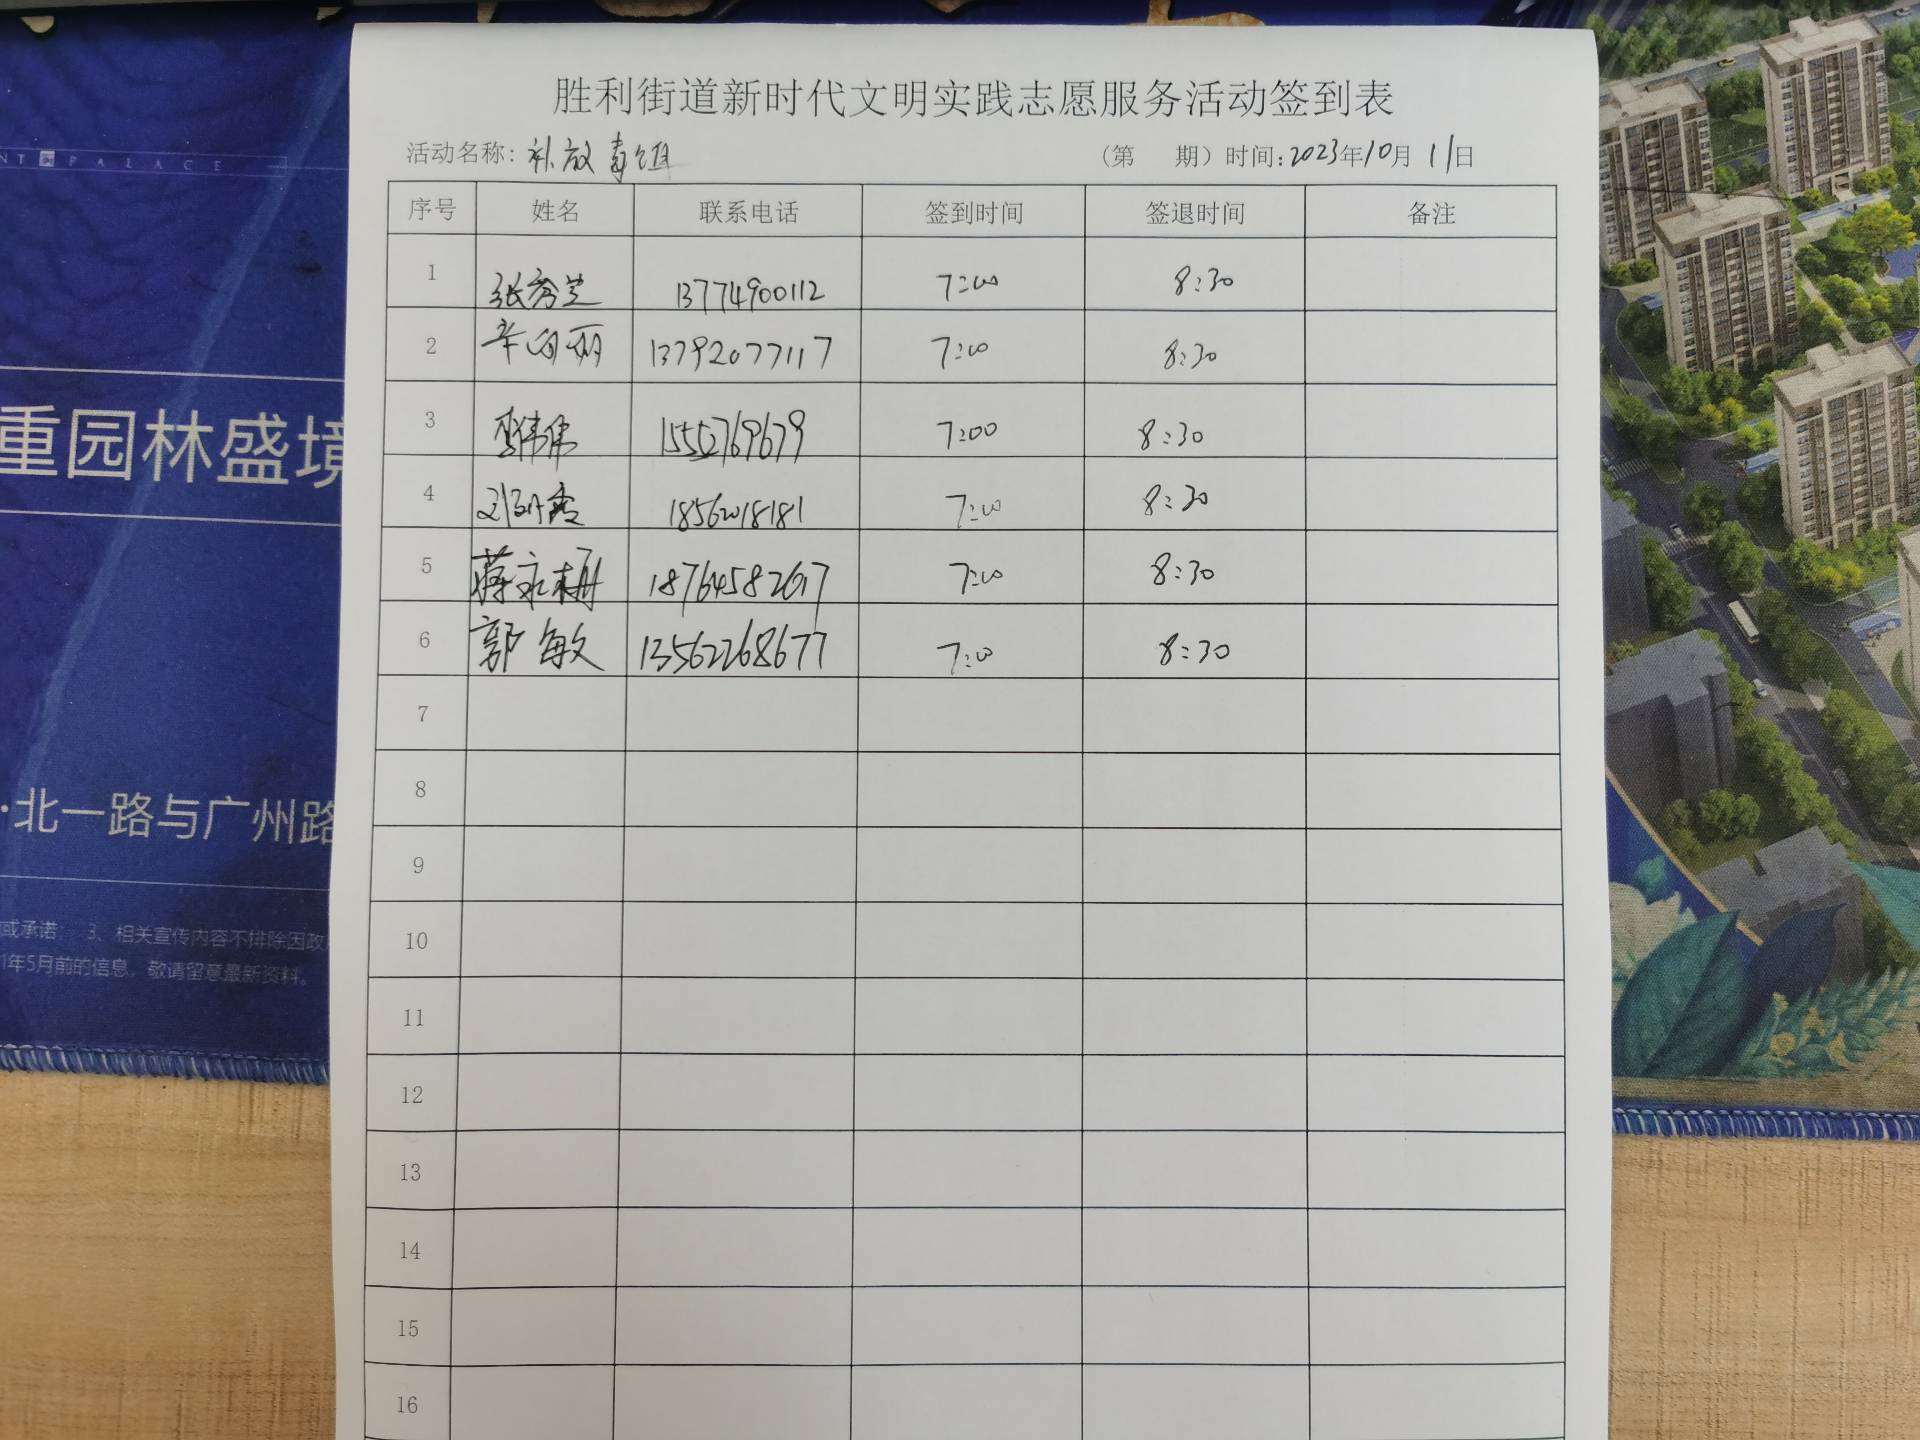 NT PALACE
重园林盛境
·北一路与广州路
或承诺; 3、相关宣传内容不排除因政
1年5月前的信息,敬请留意最新资料。
胜利街道新时代文明实践志愿服务活动签到表
活动名称: 补放毒饵 (第 期) 时间:2023年10月11日
序号 姓名 联系电话 签到时间 签退时间 备注
1 张秀兰 13774900112 7:00 8:30
2 辛向丽 13792077117 7:00 8:30
3 李伟伟 15552769679 7:00 8:30
4 18562018181 7:00 8:30
5 蒋永梅 18764582617 7:00 8:30
6 郭敏 13562268677 7:00 8:30
7
8
9
10
11
12
13
14
15
16